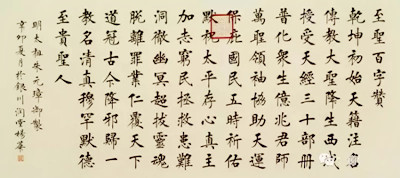 至聖百字贊
乾坤初始天籍注名
傳教大聖降生西域
授受天經三十部册
普化衆生億兆君師
萬聖領袖協助天運
保庇國民五時祈佑
默祝太平存心真主
加志窮民拯救患難
洞徹幽冥超拔靈魂
脫離罪業仁覆天下
道冠古今降邪歸一
教名清真穆罕默德
至貴聖人
明太祖朱元璋御製
辛卯夏月於銀川潤堂楊華